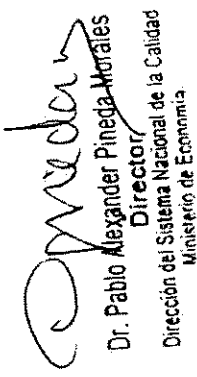 Pineda
Dr. Pablo Alexander Pineda Morales
Director
Dirección del Sistema Nacional de la Calidad
Ministerio de Economía